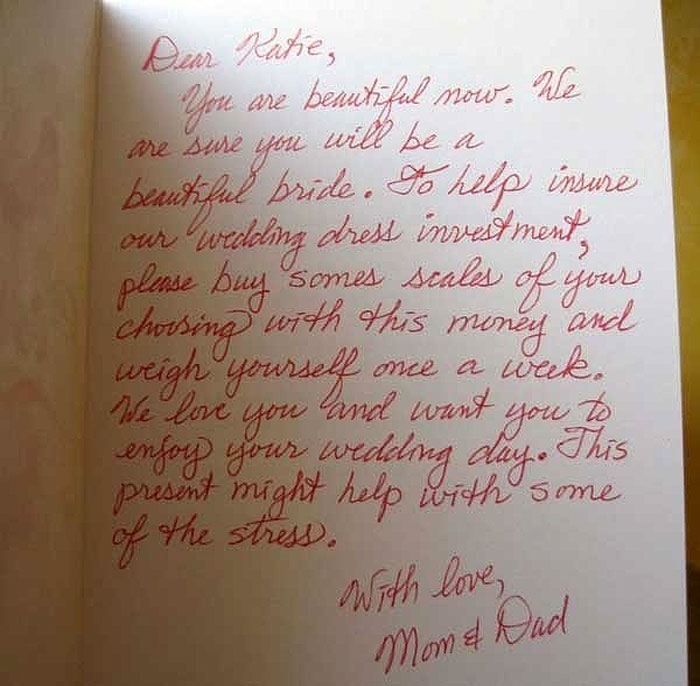 Dear Katie,
You are beautiful now. We
are sure you will be a
beautiful bride. To help insure
our wedding dress investment,
please buy somes scales of your
choosing with this money and
weigh yourself once a week.
We love you and want you to
enjoy your wedding day. This
present might help with some
of the stress.
With love,
Mom & Dad